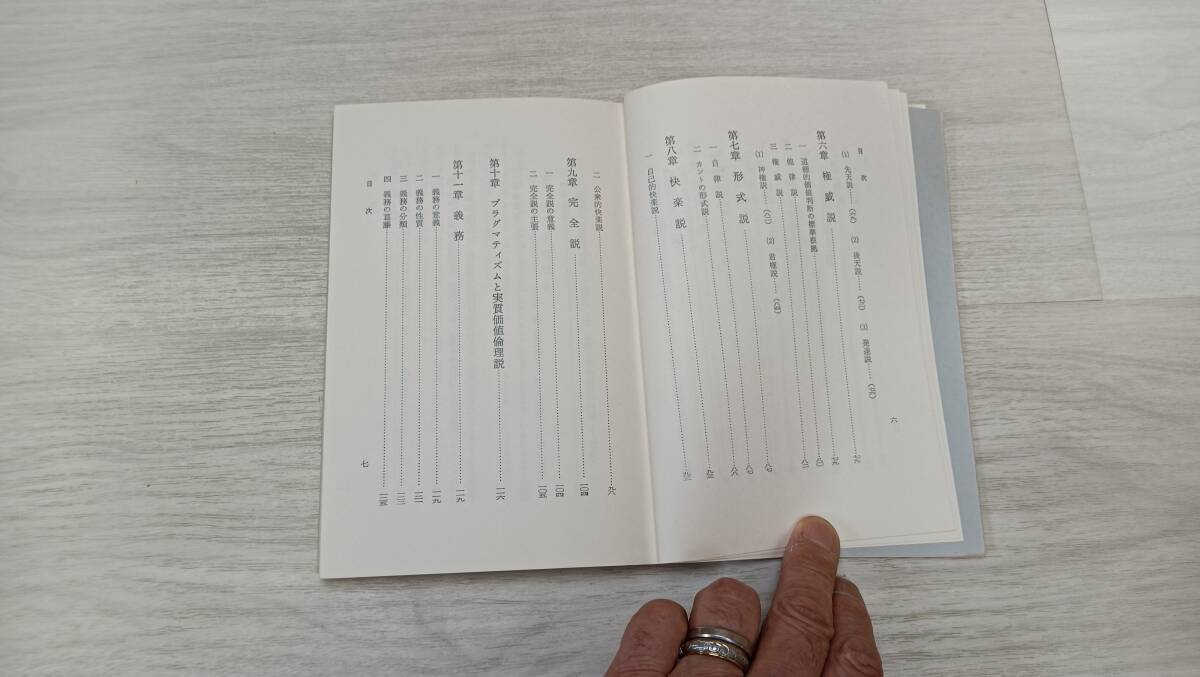 目次
(1) 先天説……(六八) (2) 後天説……(七三) (3) 発達説……(七六)
第六章 権威説……七九
一 道徳的価値判断の標準根拠……八〇
二 他律説……八二
三 権威説
(1) 神権説……(八三) (2) 君権説……(八四)
第七章 形式説
一 自律説……八七
二 カントの形式説
第八章 快楽説
一 自己的快楽説
六
二 公衆的快楽説……九八
第九章 完全説……一〇四
一 完全説の意義……一〇四
二 完全説の主張……一〇五
第十章 プラグマティズムと実質価値倫理説……一一六
第十一章 義務……一一九
一 義務の意義……一一九
二 義務の性質
三 義務の分類
四 義務の葛藤……一二五
目次
七